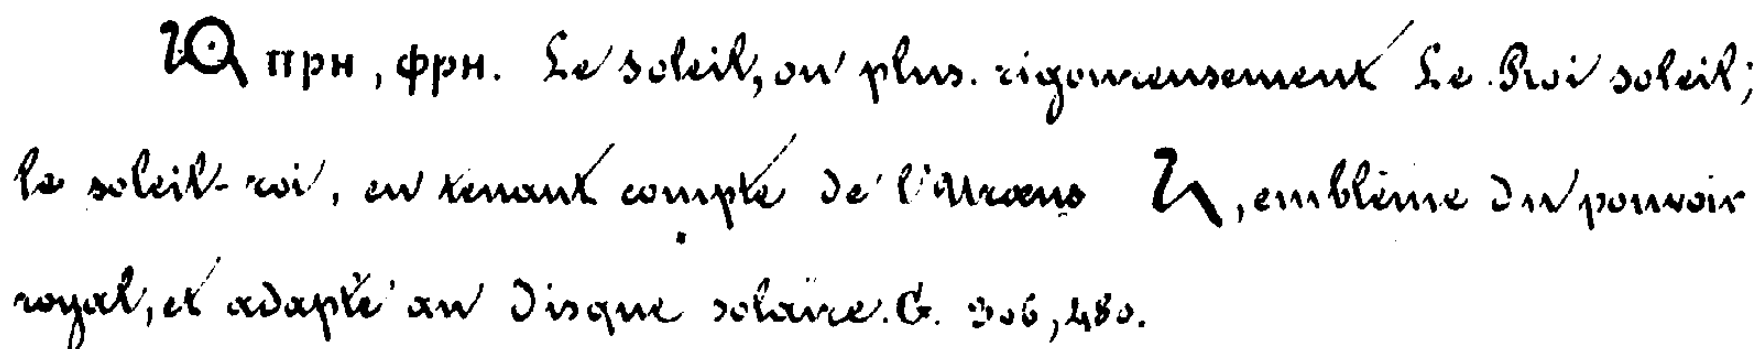 ⲡⲣⲏ, ⲫⲣⲏ. Le soleil, ou plus rigoureusement Le Roi soleil;
le soleil-roi, en tenant compte de l'Uraeus, emblême du pouvoir
royal, et adapté au disque solaire. G. 306, 480.